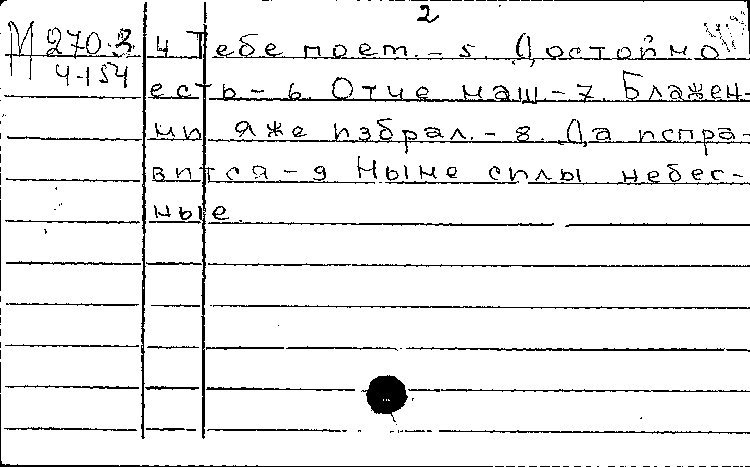 2
М 270.3 4 Тебе поем. - 5. Достойно
4-154
есть - 6. Отче наш - 7. Блажен-
ни яже избрал. - 8. Да испра-
вится - 9 Ныне силы небес-
ные.